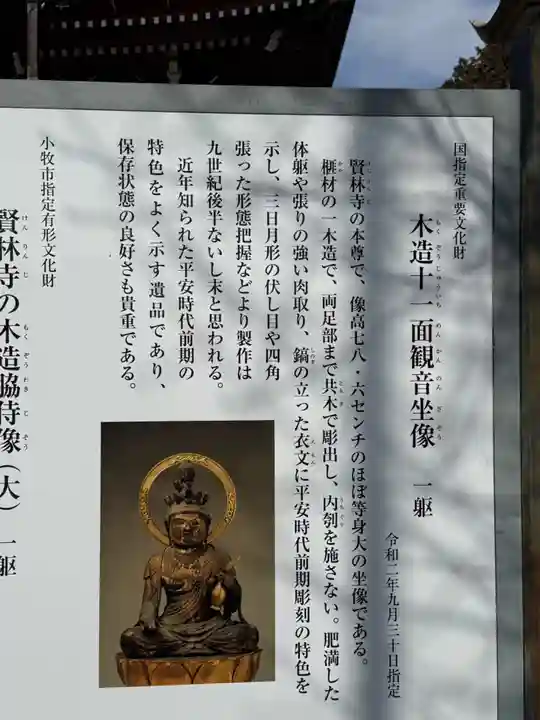 国指定重要文化財
木造十一面観音坐像　一躯
もくぞうじゅういちめんかんのんざぞう
令和二年九月三十日指定
賢林寺の本尊で、像高七八・六センチのほぼ等身大の坐像である。
榧材の一木造で、両足部まで共木で彫出し、内刳を施さない。肥満した
体躯や張りの強い肉取り、鎬の立った衣文に平安時代前期彫刻の特色を
示し、三日月形の伏し目や四角
張った形態把握などより製作は
九世紀後半ないし末と思われる。
近年知られた平安時代前期の
特色をよく示す遺品であり、
保存状態の良好さも貴重である。
小牧市指定有形文化財
賢林寺の木造脇侍像（大）　一躯
けんりんじ　もくぞうわきじぞう